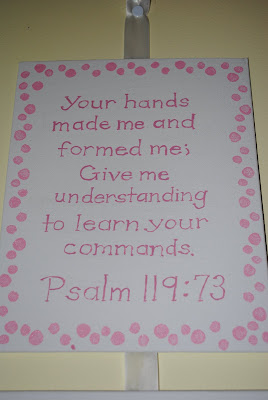 Your hands
made me and
formed me;
Give me
understanding
to learn your
commands.
Psalm 119:73